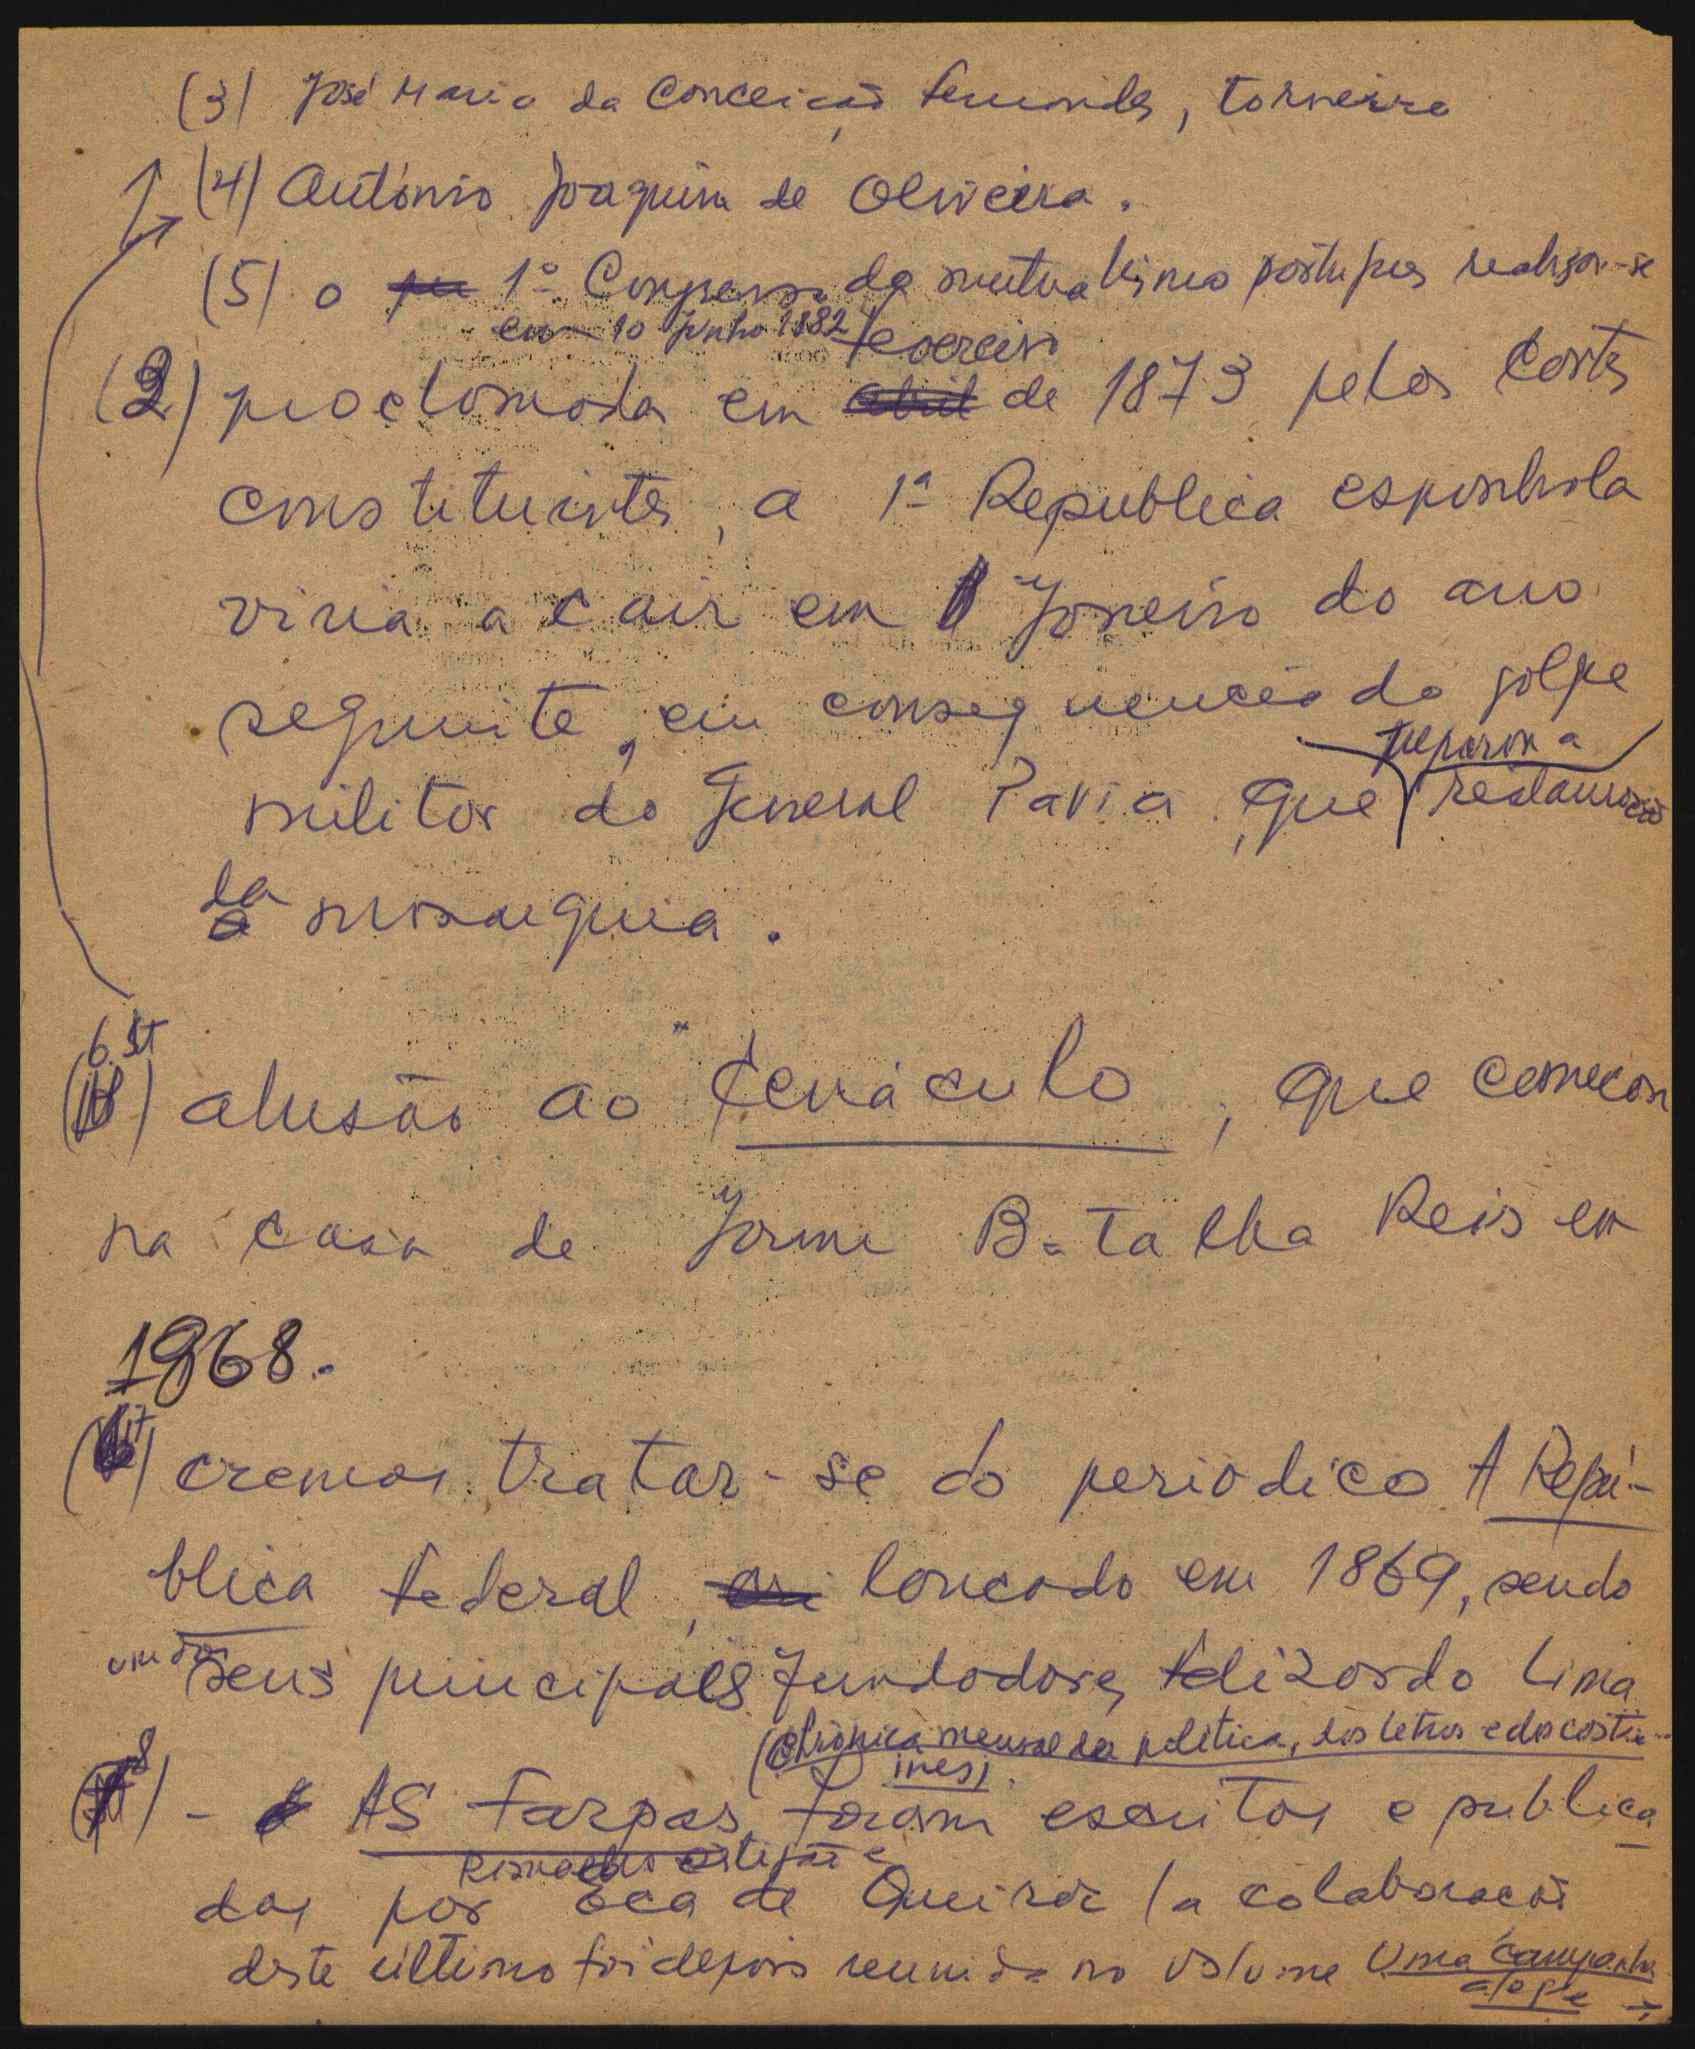 (3) José Maria da Conceição Fernandes, torneiro
(4) António Joaquim de Oliveira.
(5) o 1º Congresso do mutualismo português realizou-se
em 10 junho 1882
fevereiro
(2) proclamada em abril de 1873 pelas Cortes
constituintes, a 1ª República espanhola
viria a cair em Janeiro do ano
seguinte, em consequência do golpe
preparou a
militar do General Pavia, que restauração
da
a monarquia.
6
( ) alusão ao "Cenáculo, que começou
na casa de Jaime Batalha Reis em
1868.
7
( ) cremos tratar-se do periódico A Repú-
blica Federal, lançado em 1869, sendo
um dos
seus principais fundadores Felizardo Lima
(Chronica mensal da política, das letras e dos costu-
mes)
8
( ) - As Farpas, foram escritas e publica
Ramalho Ortigão e
das por Eça de Queiroz (a colaboração
deste último foi depois reunida no volume Uma Campanha
alegre →